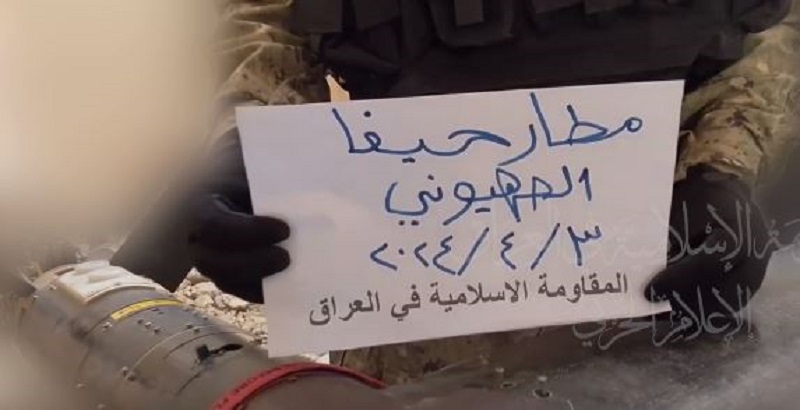 مطار حيفا
الصهيوني
٢٠٢٤/٤/٣
المقاومة الاسلامية في العراق
الإسلامية
الإعلام الحربي